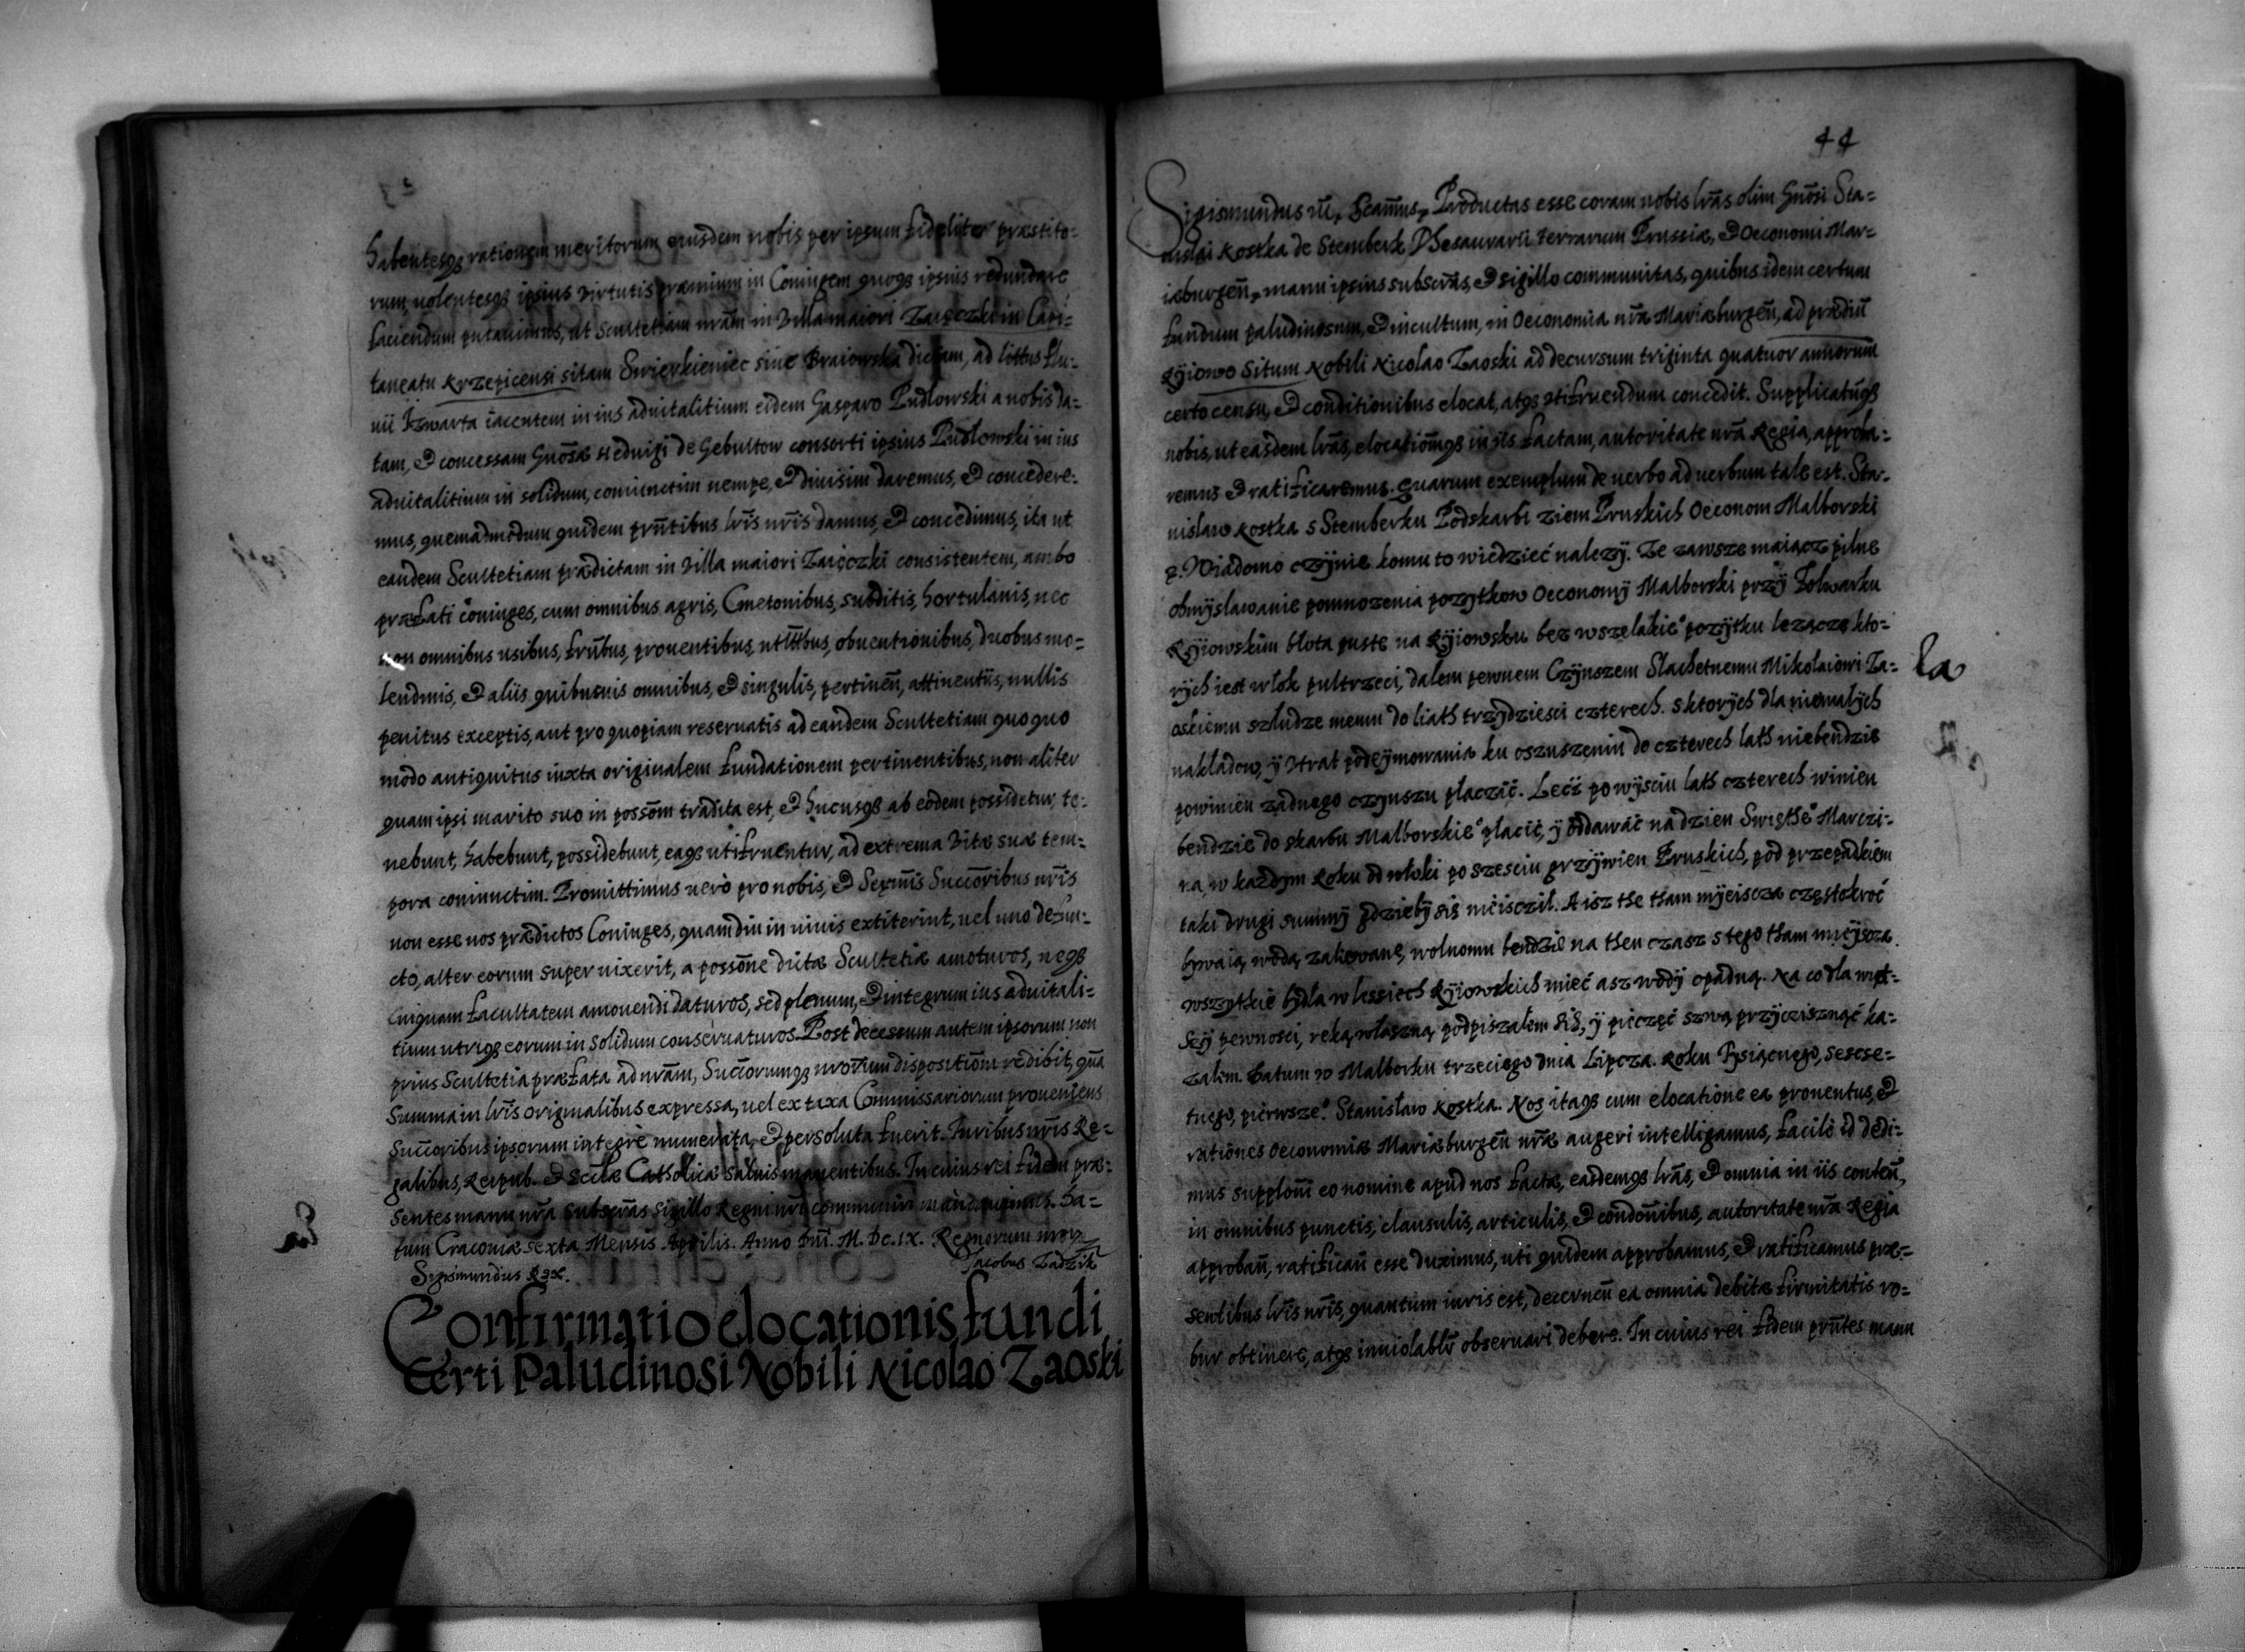 Habentesq; rationem meritorum eiusdem nobis per ipsum fideliter præstito-
rum, uolentesq; ipsius virtutis præmium in Coniugem quoq; ipsius redundare
faciendum putauimus, ut Scultetiam nrām in Villa maiori Zaięczki in Capi-
taneatu Krzepicensi sitam Swierkieniec siue Braiowska dictam, ad littus flu-
uii Iswarta iacentem in ius aduitalitium eidem Gasparo Pudlowski a nobis da-
tam, et concessam Gnōsæ Heduigi de Gebultow consorti ipsius Pudlowski in ius
aduitalitium in solidum, coniunctim nempe, et diuisim daremus, et concedere-
mus, quemadmodum quidem prn̄tibus lrīs nrīs damus, et concedimus, ita ut
eandem Scultetiam prædictam in Villa maiori Zaięczki consistentem, ambo
præfati coniuges, cum omnibus agris, Cmetonibus, subditis, hortulanis, nec
non omnibus usibus, frūbus, prouentibus, utl̄t̄bus, obuentionibus, duobus mo-
lendinis, et aliis quibusuis omnibus, et singulis, pertinen̄, attinentiis, nullis
penitus exceptis, aut pro quopiam reseruatis ad eandem Scultetiam quoquo
modo antiquitus iuxta originalem fundationem pertinentibus, non aliter
quam ipsi marito suo in possōm tradita est, et hucusq; ab eodem possidetur, te-
nebunt, habebunt, possidebunt, eaq; utifruentur, ad extrema vitæ suæ tem-
pora coniunctim. Promittimus uerò pro nobis, et Serm̄is Succōribus nrīs
non esse nos prædictos Coniuges, quamdiu in uiuis extiterint, uel uno defun-
cto, alter eorum superuixerit, a possōne dictæ Scultetiæ amoturos, neq;
cuiquam facultatem amouendi daturos, sed plenum, et integrum ius aduitali-
tium utriq; eorum in solidum conseruaturos. Post decessum autem ipsorum non
prius Scultetia præfata ad nrām, Succōrumq; nrōrum dispositiōm redibit, quā
Summa in lrīs originalibus expressa, uel ex taxa Commissariorum proueniens
Succōribus ipsorum integrè numerata, et persoluta fuerit. Iuribus nrīs Re-
galibus, Reipub. et Eccl̄æ Catholicæ saluis manentibus. In cuius rei fidem præ-
sentes manu nrā subscrās sigillo Regni nrī communiri mandauimus. Da-
tum Cracouiæ sexta Mensis Aprilis. Anno Dnī. M. DC. IX. Regnorum nror
Sigismundus Rex. Jacobus Zadzik
Confirmatio elocationis fundi
Certi Paludinosi Nobili Nicolao Zaoski
44
Sigismundus III, Scam̄us, Productas esse coram nobis lrās olim Gnōsi Sta-
nislai Kostka de Stemberk Thesaurarii terrarum Prussiæ, et Oeconomi Mar-
iæburgen̄, manu ipsius subscrās, et sigillo communitas, quibus idem certum
fundum paludinosum, et incultum, in Oeconomia nrā Mariæburgen̄, ad prædiū
Kyiowo situm Nobili Nicolao Zaoski ad decursum triginta quatuor annorum
certo censu, et conditionibus elocat, atq; utifruendum concedit. Supplicatūq;
nobis, ut easdem lrās, elocatiōmq; in iis factam, autoritate nrā Regia, approba-
remus et ratificaremus. Quarum exemplum de uerbo ad uerbum tale est. Sta-
nislaw Kostka s Stemberku Podskarbi ziem Pruskich Oeconom Malborski
etc. Wiadomo czynie komu to wiedzieć nalezy. Ze zawsze maiącz pilne
obmyslawanie pomnozenia pozytkow Oeconomy Malborski przy Folwarku
Kyiowskim błota puste na Kyiowsku bez wszelakie° pozytku lezącze kto-
rych iest włok pułtrzeci, dałem pewnem Czynszem Slachetnemu Mikolaiowi Za-
oskiemu szłudze memu do liath trzydziesci czterech. s ktorych dla niemałych
nakładow, y Utrat podeymowania ku oszuszeniu do czterech lath niebendzie
powinien zadnego czynszu płaczić. Lecz po wysciu lath czterech winien
bendzie do skarbu Malborskie° płacić, y oddawać na dzien Swięthe° Marczi-
na, w kazdym Roku od włoki po szesciu grzywien Pruskich, pod przepadkiem
taki drugi summy gdzieby sis nieisczil. A isz the tham myeiscza częstokroć
bywaią wodą zaliewane, wolnomu bendzie na then czasz s tego tham mieysca
wszytkie bydła w lessiech Kyiowskich mieć asz wody opadną. Na co dla więt-
sey pewnosci, ręką właszną podpiszałem sis, y pieczęć szwą przycisznąć ka-
załem. Datum w Malborku trzeciego dnia Lipcza. Roku Tysiącnego, sescse-
tnego, pierwsze°. Stanisław Kostka. Nos itaq; cum elocatione ea prouentus, et
rationes Oeconomiæ Mariæburgen̄ nræ augeri intelligamus, facilè id dedi-
mus supplōni eo nomine apud nos factæ, easdemq; lrās, et omnia in iis conten̄,
in omnibus punctis, clausulis, articulis, et condōnibus, autoritate nrā Regia
approban̄, ratifican̄ esse duximus, uti quidem approbamus, et ratificamus præ-
sentibus lrīs nrīs, quantum iuris est, decernen̄ ea omnia debitæ firmitatis ro-
bur obtinere, atq; inuiolablr̄ obseruari debere. In cuius rei fidem prn̄tes manu